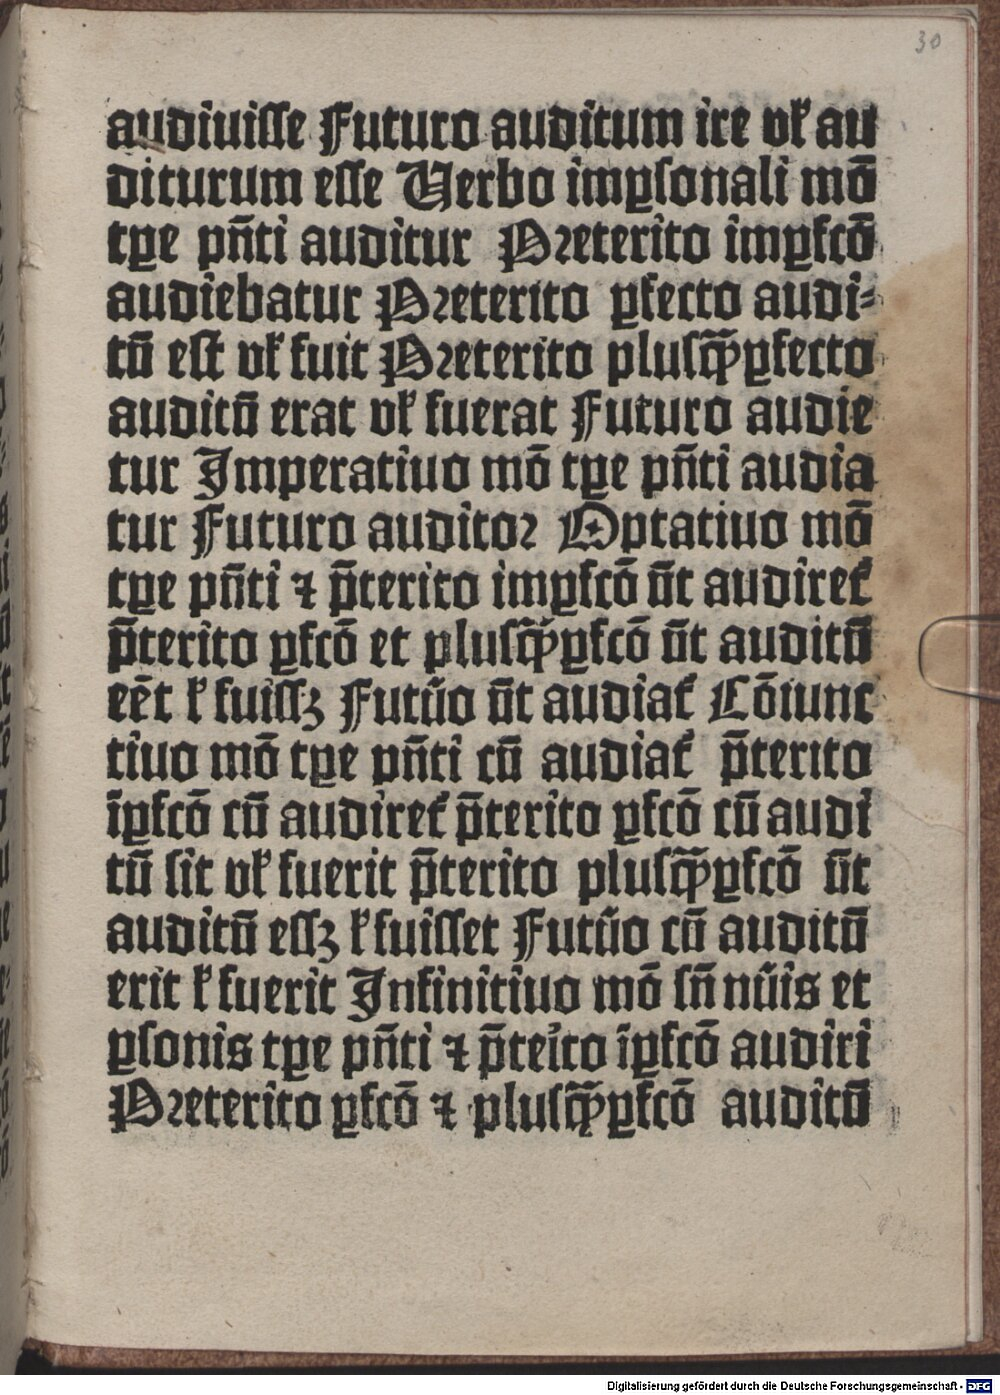 30
audiuisse Futuro auditum ire vꝉ au
diturum esse Verbo imꝑsonali mō
tꝑe pn̄ti auditur Preterito imꝑfcō
audiebatur Preterito ꝑfecto audi⸗
tū est vꝉ fuit Preterito plusꝙ̄ꝑfecto
auditū erat vꝉ fuerat Futuro audie
tur Imperatiuo mō tꝑe pn̄ti audia
tur Futuro auditoꝛ Optatiuo mō
tꝑe pn̄ti ⁊ p̄terito imꝑfcō vt̄ audiret᷑
p̄terito ꝑfcō et plusꝙ̄ꝑfcō vt̄ auditū
eēt ꝉ fuissꝫ Futūo vt̄ audiat᷑ Cōiunc
tiuo mō tꝑe pn̄ti cū audiat᷑ p̄terito
īꝑfcō cū audiret᷑ p̄terito ꝑfcō cū audi
tū sit vꝉ fuerit p̄terito plusꝙ̄ꝑfcō vt̄
auditū essꝫ ꝉ fuisset Futūo cū auditū
erit ꝉ fuerit Infinitiuo mō sn̄ nūis et
ꝑsonis tꝑe pn̄ti ⁊ p̄teīto īꝑfcō audiri
Preterito ꝑfcō ⁊ plusꝙ̄ꝑfcō auditū
Digitalisierung gefördert durch die Deutsche Forschungsgemeinschaft - DFG